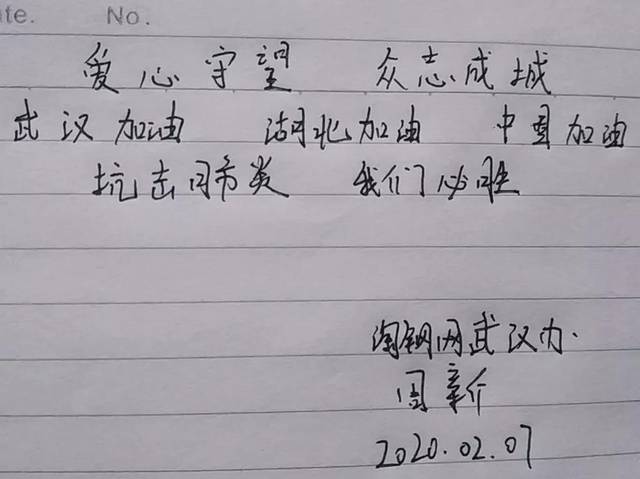 te. No.
爱心守望 众志成城
武汉加油 湖北加油 中国加油
抗击肺炎 我们必胜
淘钢网武汉办.
周
2020.02.07